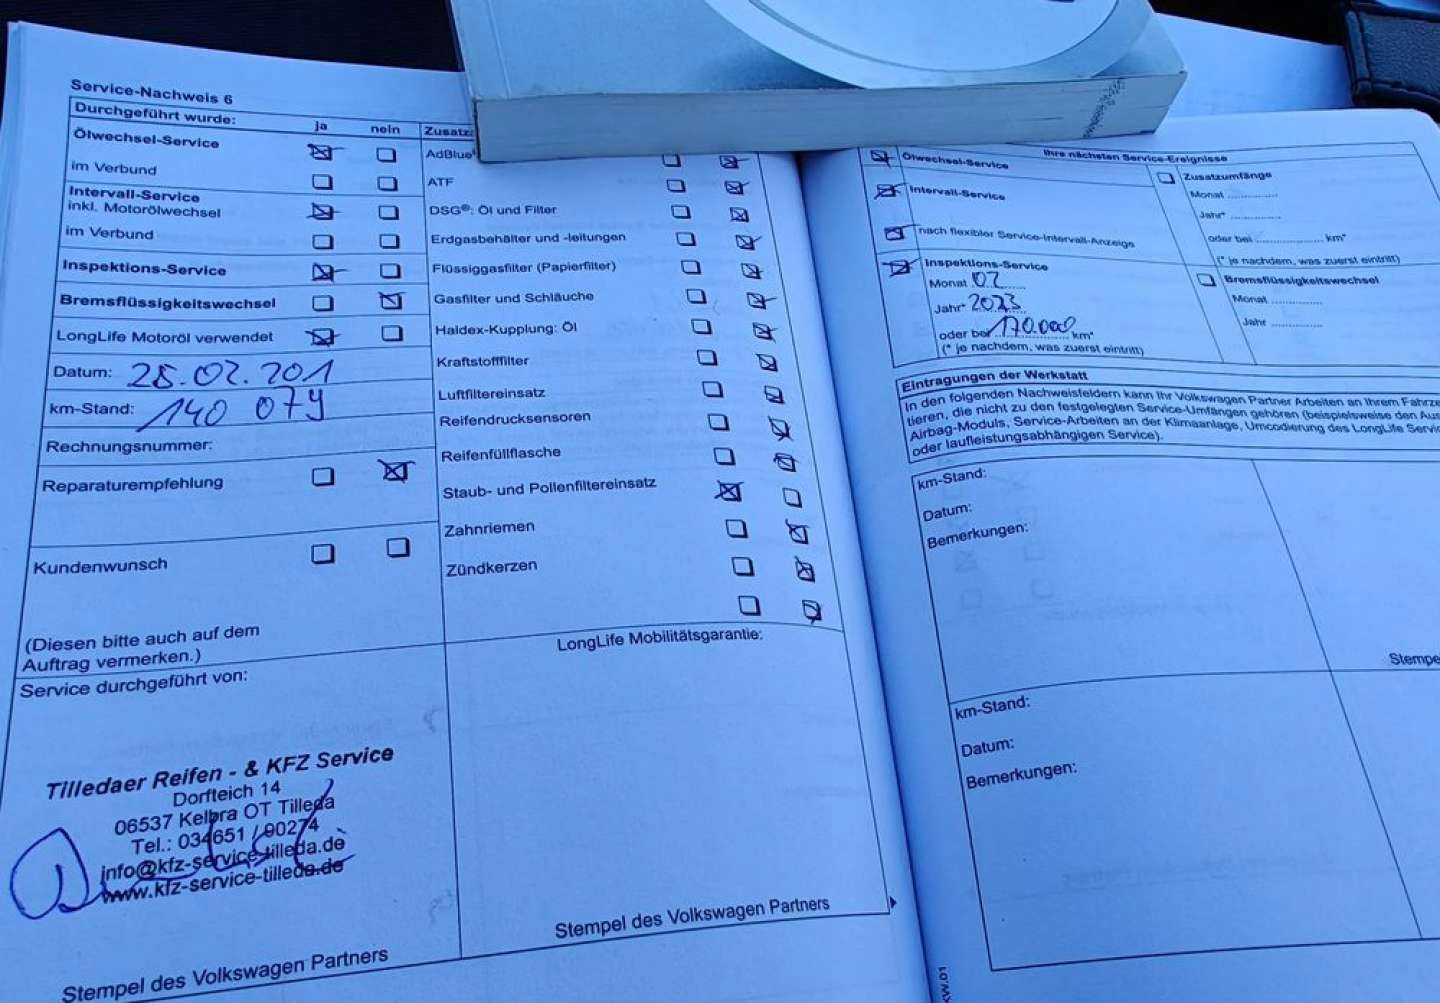 Service-Nachweis 6
Durchgeführt wurde: ja nein
Ölwechsel-Service
im Verbund
Intervall-Service
inkl. Motorölwechsel
im Verbund
Inspektions-Service
Bremsflüssigkeitswechsel
LongLife Motoröl verwendet
Datum: 28.02.201
km-Stand: 140 074
Rechnungsnummer:
Reparaturempfehlung
Kundenwunsch
(Diesen bitte auch auf dem
Auftrag vermerken.)
Service durchgeführt von:
Tilledaer Reifen - & KFZ Service
Dorfteich 14
06537 Kelbra OT Tilleda
Tel.: 034651 / 90274
info@kfz-service-tilleda.de
www.kfz-service-tilleda.de
Stempel des Volkswagen Partners
Zusatz:
AdBlue
ATF
DSG®: Öl und Filter
Erdgasbehälter und -leitungen
Flüssiggasfilter (Papierfilter)
Gasfilter und Schläuche
Haldex-Kupplung: Öl
Kraftstofffilter
Luftfiltereinsatz
Reifendrucksensoren
Reifenfüllflasche
Staub- und Pollenfiltereinsatz
Zahnriemen
Zündkerzen
LongLife Mobilitätsgarantie:
Stempel des Volkswagen Partners
Ihre nächsten Service-Ereignisse
Ölwechsel-Service
Intervall-Service
nach flexibler Service-Intervall-Anzeige
Inspektions-Service
Monat 02
Jahr* 2023
oder bei 170.000 km*
(* je nachdem, was zuerst eintritt)
Zusatzumfänge
Monat ..............
Jahr* ..............
oder bei .................... km*
(* je nachdem, was zuerst eintritt)
Bremsflüssigkeitswechsel
Monat ..............
Jahr ..............
Eintragungen der Werkstatt
In den folgenden Nachweisfeldern kann Ihr Volkswagen Partner Arbeiten an Ihrem Fahrze
tieren, die nicht zu den festgelegten Service-Umfängen gehören (beispielsweise den Aus
Airbag-Moduls, Service-Arbeiten an der Klimaanlage, Umcodierung des LongLife Servic
oder laufleistungsabhängigen Service).
km-Stand:
Datum:
Bemerkungen:
Stempe
km-Stand:
Datum:
Bemerkungen: